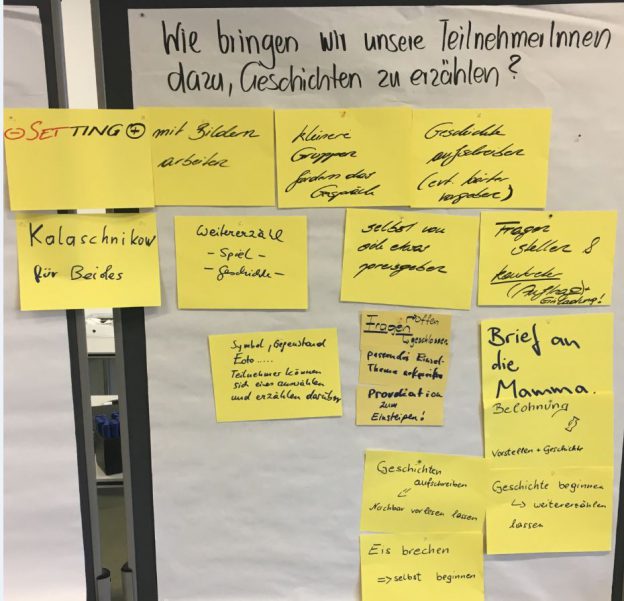 Wie bringen wir unsere TeilnehmerInnen
dazu, Geschichten zu erzählen?
⊖ SETTING ⊕
mit Bildern
arbeiten
kleinere
Gruppen
fördern das
Gespräch
Geschichte
aufschreiben
(evt. weiter
vorgeben)
Kalaschnikow
für Beides
Weitererzähl
- Spiel -
- Geschichte -
selbst von
etwas
preisgeben
Fragen
stellen &
konkreter
(Auftrag)+
Einladung!
Symbol, Gegenstand
Foto.....
Teilnehmer können
sich einen auswählen
und erzählen darüber
Fragen
offen
geschlossen
passendes Einzel-
Thema aufgreifen
Provokation
zum
Einsteigen!
Brief an
die
Mamma.
Belohnung
Vorstellen + Geschichte
Geschichten
aufschreiben
Nachbar vorlesen lassen
Geschichte beginnen
↳ weitererzählen
lassen
Eis brechen
=> selbst beginnen